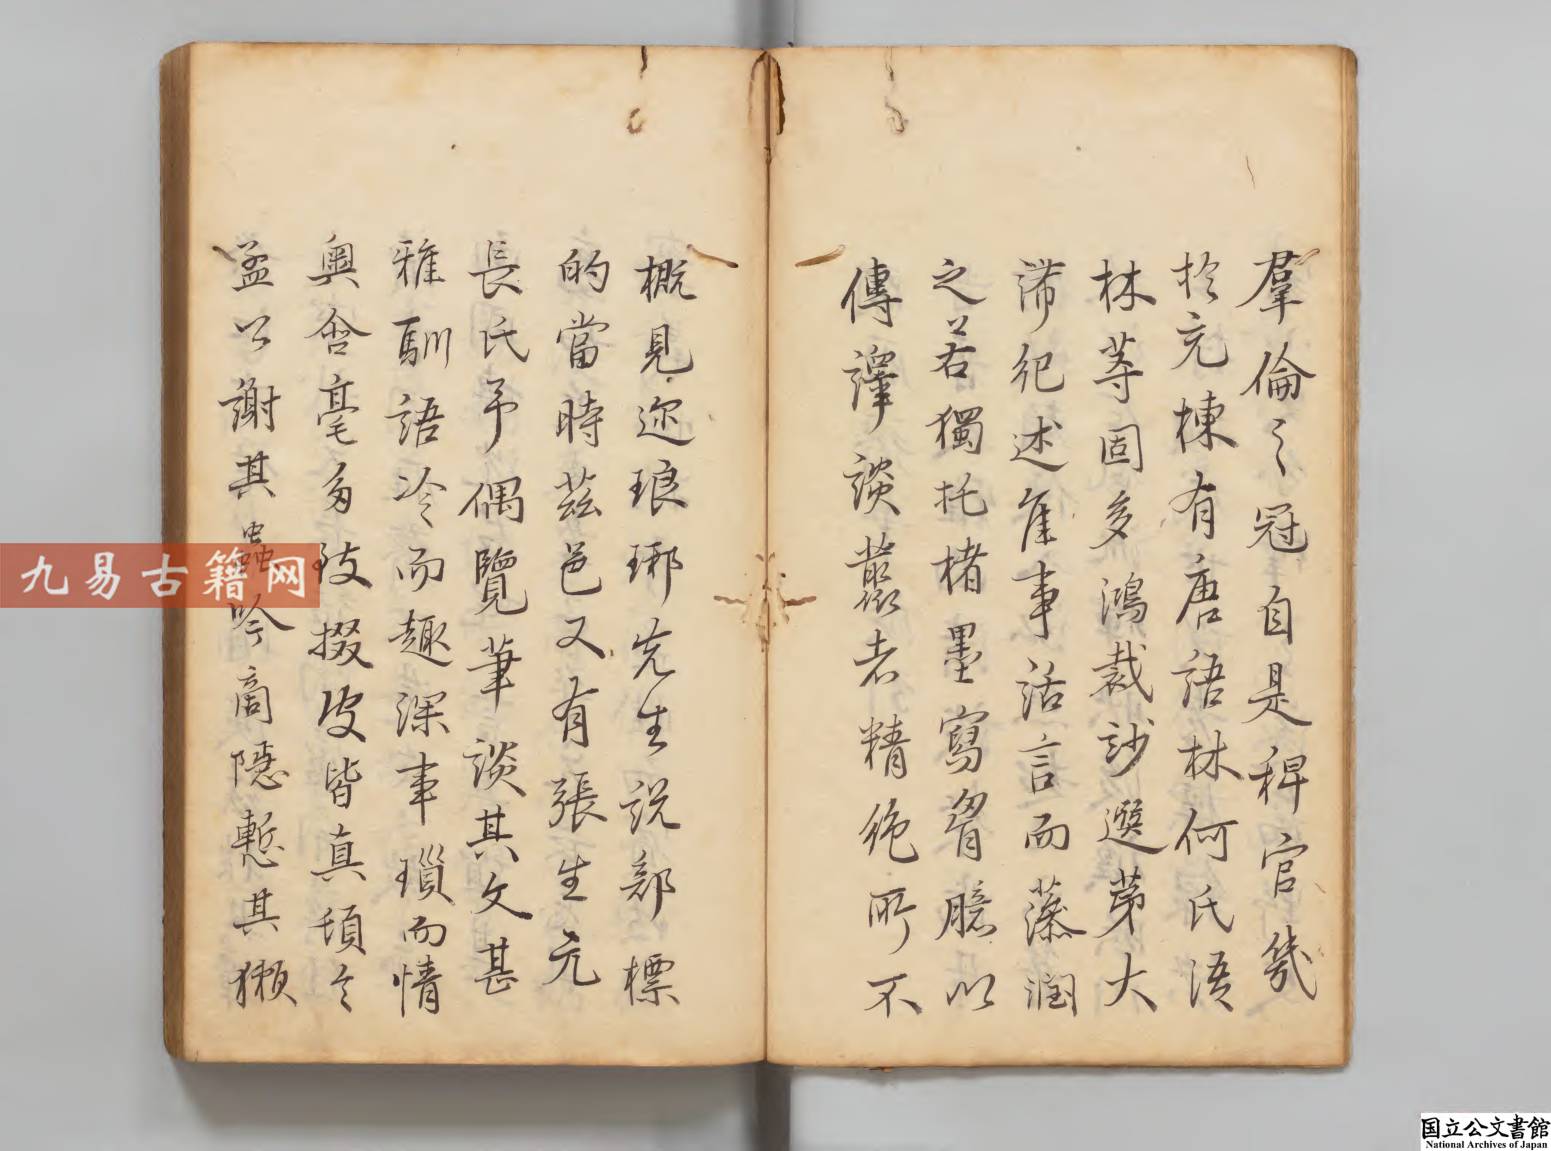 羣倫之冠自是稗官幾
於充棟有唐語林何氏語
林等固多鴻裁鈔選第大
沛紀述隹事活言而藻潤
之若獨托楮墨寫胷臆以
傳譚談叢者精絶所不
概見迩琅琊先生説部標
的當時茲邑又有張生元
長氏予偶覽筆談其文甚
雅馴語冷而趣深事瑣而情
奥含毫多致掇皮皆真頓令
孟公謝其蟲吟商隱慙其獺
九易古籍网
国立公文書館
National Archives of Japan